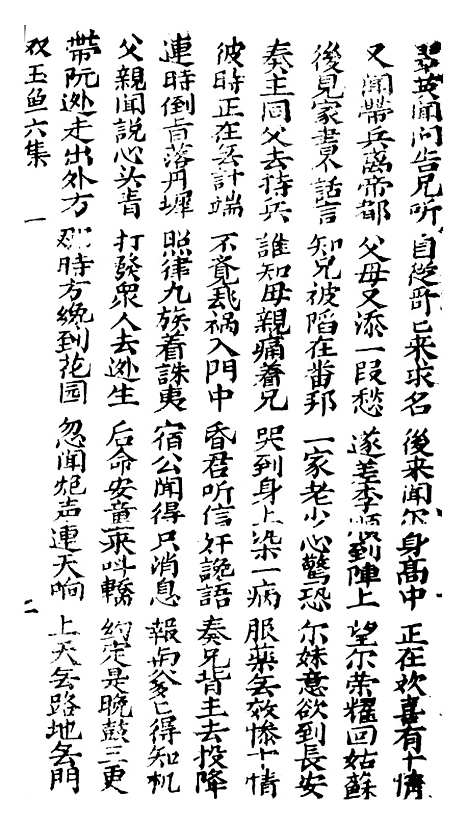 翠英闻问告兄听 自從哥己来求名 後来闻尔身高中 正在欢喜有十情
又闻帶兵离帝都 父母又添一段愁 遂差李順到陣上 望尔荣耀回姑蘇
後見家書不話言 知兄被陷在番邦 一家老少心驚恐 尔妹意欲到長安
奏主同父去待兵 誰知母親痛着兄 哭到身上染一病 服藥旡效惨十情
彼時正在旡計端 不覚飛祸入門中 昏君听信奸讒語 奏兄背主去投降
連時倒旨落丹墀 照律九族着誅夷 宿公闻得只消息 報爹己得知机
父親闻説心头青 打發衆人去逊生 后命安童来呌轎 约定是晚鼓三更
帶阮逊走出外方 時方纔到花园 忽闻炮声連天响 上天旡路地旡門
双玉鱼六集 一 二